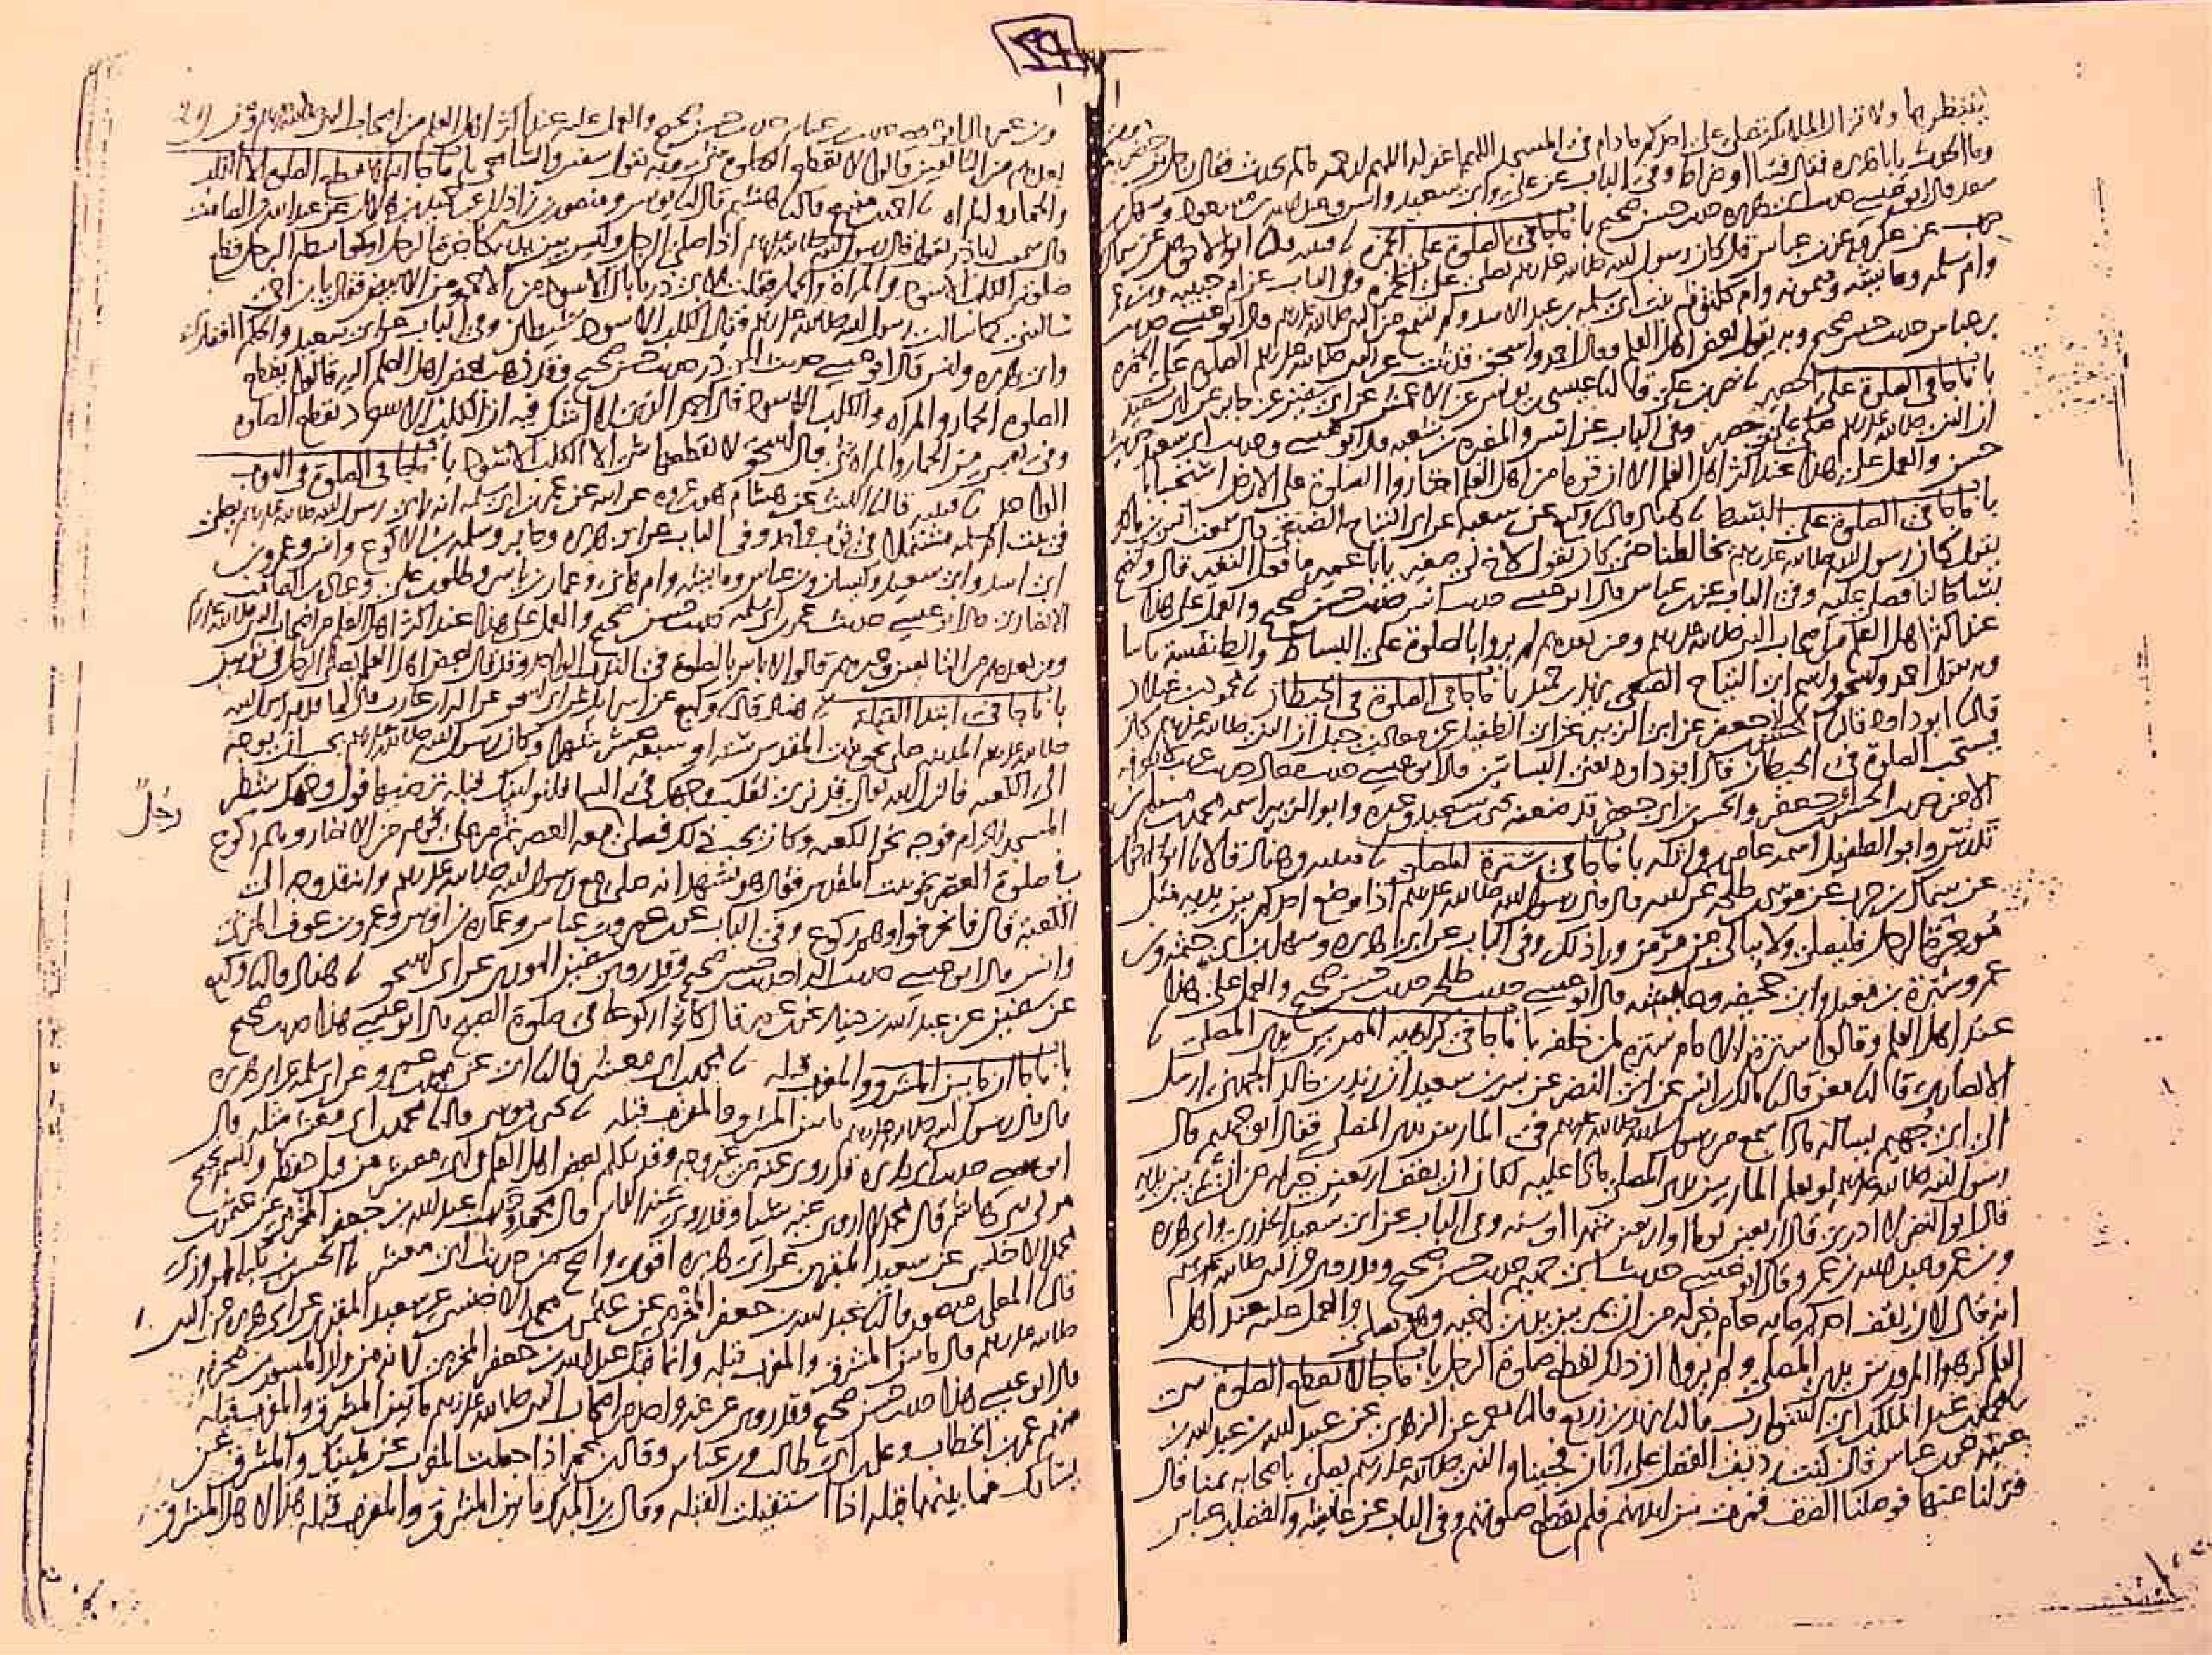 29
ينتظرها ولا تزال الملائكة تصلي على احدكم ما دام في المسجد اللهم اغفر له اللهم ارحمه ما لم يحدث فقال رجل من حضرموت
وما الحدث يا ابا هريره فقال فسا او ضراط وفي الباب عن علي وابي سعيد وانس وعبد الله بن مسعود وسهل بن
سعد قال ابو عيسى حديث ابي هريره حديث حسن صحيح باب ما جا في الصلوة على الخمرة قتيبه ابو الاحوص عن سماك بن
حرب عن عكرمه عن ابن عباس قال كان رسول الله صلى الله عليه وسلم يصلي على الخمره وفي الباب عن ام حبيبه وابن عمر
وام سلمه وعايشه وميمونه وام كلثوم بنت ابي سلمه بن عبد الاسد ولم تسمع من النبي صلى الله عليه وسلم قال ابو عيسى حديث
بن عباس حديث حسن صحيح وبه يقول بعض اهل العلم وقال احمد واسحق قد ثبت عن النبي صلى الله عليه وسلم الصلوة على الخمره
باب ما جا في الصلوة على الحصير نصر بن علي قال نا عيسى بن يونس عن الاعمش عن ابي سفين عن جابر عن ابي سعيد
ان النبي صلى الله عليه وسلم صلى على حصير وفي الباب عن انس والمغيره بن شعبه قال ابو عيسى وحديث ابي سعيد حديث
حسن والعمل على هذا عند اكثر اهل العلم الا ان قوما من اهل العلم اختاروا الصلوة على الارض استحبابا
باب ما جا في الصلوة على البسط هناد قال نا وكيع عن شعبه عن ابي التياح الضبعي قال سمعت انس بن مالك
يقول كان رسول الله صلى الله عليه وسلم يخالطنا حتى كان يقول لاخ لي صغير يابا عمير ما فعل النغير قال ونضح
بساط لنا فصلى عليه وفي الباب عن ابن عباس قال ابو عيسى حديث انس حديث حسن صحيح والعمل على هذا
عند اكثر اهل العلم من اصحاب النبي صلى الله عليه وسلم ومن بعدهم لم يروا بالصلوة على البساط والطنفسة باسا
وبه يقول احمد واسحق واسم ابي التياح الضبعي يزيد بن حميد باب ما جا في الصلوة في الحيطان محمود بن غيلان
قال نا ابو داود قال نا الحسن بن ابي جعفر عن ابي الزبير عن ابي الطفيل عن معاذ بن جبل ان النبي صلى الله عليه وسلم كان
يستحب الصلوة في الحيطان قال ابو داود يعني البساتين قال ابو عيسى حديث معاذ حديث غريب لا نعرفه
الا من حديث الحسن بن ابي جعفر والحسن بن ابي جعفر قد ضعفه يحيى بن سعيد وغيره وابو الزبير اسمه محمد بن مسلم بن
تدرس وابو الطفيل اسمه عامر بن واثله باب ما جا في سترة المصلي قتيبه وهناد قالا نا ابو الاحوص
عن سماك بن حرب عن موسى بن طلحه عن ابيه قال قال رسول الله صلى الله عليه وسلم اذا وضع احدكم بين يديه مثل
موخرة الرحل فليصل ولا يبالي من مر من ورا ذلك وفي الباب عن ابي هريره وسهل بن ابي حثمه وبن
عمر وسبرة بن معبد وابي جحيفه وعايشه قال ابو عيسى حديث طلحه حديث حسن صحيح والعمل على هذا
عند اهل العلم وقالوا سترة الامام سترة لمن خلفه باب ما جا في كراهية الممر بين يدي المصلي
الانصاري قال نا معن قال نا مالك بن انس عن ابي النضر عن بسر بن سعيد ان زيد بن خالد الجهني ارسل
الى ابي جهيم يساله ماذا سمع من رسول الله صلى الله عليه وسلم في المار بين يدي المصلي فقال ابو جهيم قال
رسول الله صلى الله عليه وسلم لو يعلم المار بين يدي المصلي ماذا عليه لكان ان يقف اربعين خير له من ان يمر بين يديه
قال ابو النضر لا ادري قال اربعين يوما او اربعين شهرا او سنه وفي الباب عن ابي سعيد الخدري وابي هريره
وبن عمر وعبد الله بن عمرو قال ابو عيسى حديث ابي جهيم حديث حسن صحيح وقد روي عن النبي صلى الله عليه وسلم
انه قال لان يقف احدكم مايه عام خير له من ان يمر بين يدي اخيه وهو يصلي والعمل عليه عند اهل
العلم كرهوا المرور بين يدي المصلي ولم يروا ان ذلك يقطع صلوة الرجل باب ما جا لا يقطع الصلوة شي
محمد بن عبد الملك بن ابي الشوارب قال نا يزيد بن زريع قال نا معمر عن الزهري عن عبيد الله بن عبد الله بن
عتبه عن ابن عباس قال كنت رديف الفضل على اتان فجينا والنبي صلى الله عليه وسلم يصلي باصحابه بمنا قال
فنزلنا عنها فوصلنا الصف فمرت بين ايديهم فلم تقطع صلوتهم وفي الباب عن عايشه والفضل بن عباس
وبن عمر قال ابو عيسى حديث بن عباس حديث حسن صحيح والعمل عليه عند اكثر اهل العلم من اصحاب النبي صلى الله عليه وسلم ومن
بعدهم من التابعين قالوا لا يقطع الصلوة شي وبه يقول سفين والشافعي باب ما جا انه لا يقطع الصلوة الا الكلب
والحمار والمراه احمد بن منيع قال نا هشيم قال نا يونس ومنصور بن زاذان عن حميد بن هلال عن عبد الله بن الصامت
قال سمعت ابا ذر يقول قال رسول الله صلى الله عليه وسلم اذا صلى الرجل وليس بين يديه كاخرة الرحل او كواسطة الرحل قطع
صلوته الكلب الاسود والمراة والحمار فقلت لابي ذر ما بال الاسود من الاحمر من الابيض فقال يا بن اخي
سالتني كما سالت رسول الله صلى الله عليه وسلم فقال الكلب الاسود شيطان وفي الباب عن ابي سعيد والحكم الغفاري
وابي هريره وانس قال ابو عيسى حديث ابي ذر حديث حسن صحيح وقد ذهب بعض اهل العلم اليه قالوا يقطع
الصلوة الحمار والمراه والكلب الاسود قال احمد الذي لا اشك فيه ان الكلب الاسود يقطع الصلوة
وفي نفسي من الحمار والمراة شي قال اسحق لا يقطعها شي الا الكلب الاسود باب ما جا في الصلوة في الثوب
الواحد قتيبه قال نا الليث عن هشام هو بن عروه عن ابيه عن عمر بن ابي سلمه انه راى رسول الله صلى الله عليه وسلم يصلي
في بيت ام سلمه مشتملا في ثوب واحد وفي الباب عن ابي هريره وجابر وسلمه بن الاكوع وانس وعمرو بن
ابي اسيد وابي سعيد وكيسان وبن عباس وعايشه وام هاني وعمار بن ياسر وطلق بن علي وعباده بن الصامت
الانصاري قال ابو عيسى حديث عمر بن ابي سلمه حديث حسن صحيح والعمل على هذا عند اكثر اهل العلم من اصحاب النبي صلى الله عليه وسلم
ومن بعدهم من التابعين وغيرهم قالوا لا باس بالصلوة في الثوب الواحد وقد قال بعض اهل العلم يصلي الرجل في ثوبين
باب ما جا في ابتدا القبلة هناد قال نا وكيع عن اسرايل عن ابي اسحق عن البرا بن عازب قال لما قدم رسول الله
صلى الله عليه وسلم المدينه صلى نحو بيت المقدس ستة او سبعة عشر شهرا وكان رسول الله صلى الله عليه وسلم يحب ان يوجه
الى الكعبه فانزل الله تعالى قد نرى تقلب وجهك في السما فلنولينك قبلة ترضيها فول وجهك شطر
المسجد الحرام فوجه نحو الكعبه وكان يحب ذلك فصلى معه العصر ثم مر على قوم من الانصار وهم ركوع
رجل
في صلوة العصر نحو بيت المقدس فقال هو يشهد انه صلى مع رسول الله صلى الله عليه وسلم وانه قد وجه الى
الكعبة قال فانحرفوا وهم ركوع وفي الباب عن بن عمر وبن عباس وعماره بن اوس وعمرو بن عوف المزني
وانس قال ابو عيسى حديث البرا حديث حسن صحيح وقد روى سفين الثوري عن ابي اسحق هناد قال نا وكيع
عن سفين عن عبد الله بن دينار عن بن عمر قال كانوا ركوعا في صلوة الصبح قال ابو عيسى هذا حديث صحيح
باب ما جا ان ما بين المشرق والمغرب قبلة محمد بن ابي معشر قال نا ابي عن محمد بن عمرو عن ابي سلمه عن ابي هريره
قال قال رسول الله صلى الله عليه وسلم ما بين المشرق والمغرب قبله يحيى بن موسى قال نا محمد بن ابي معشر مثله قال
ابو عيسى حديث ابي هريره قد روي عنه من غير وجه وقد تكلم بعض اهل العلم في ابي معشر من قبل حفظه واسمه نجيح
مولى بني هاشم قال محمد لا اروي عنه شيا وقد روى عنه الناس قال محمد وحديث عبد الله بن جعفر المخرمي عن عثمن بن
محمد الاخنسي عن سعيد المقبري عن ابي هريره اقوى واصح من حديث ابي معشر نا الحسن بن بكر المروزي
قال نا المعلى بن منصور قال نا عبد الله بن جعفر المخرمي عن عثمن بن محمد الاخنسي عن سعيد المقبري عن ابي هريره عن النبي
صلى الله عليه وسلم قال ما بين المشرق والمغرب قبله وانما قيل عبد الله بن جعفر المخرمي لانه من ولد المسور بن مخرمه
قال ابو عيسى هذا حديث حسن صحيح وقد روي عن غير واحد من اصحاب النبي صلى الله عليه وسلم ما بين المشرق والمغرب قبله
منهم عمر بن الخطاب وعلي بن ابي طالب وبن عباس وقال بن عمر اذا جعلت المغرب عن يمينك والمشرق عن
يسارك فما بينهما قبله اذا استقبلت القبله وقال بن المبارك ما بين المشرق والمغرب قبله هذا لاهل المشرق